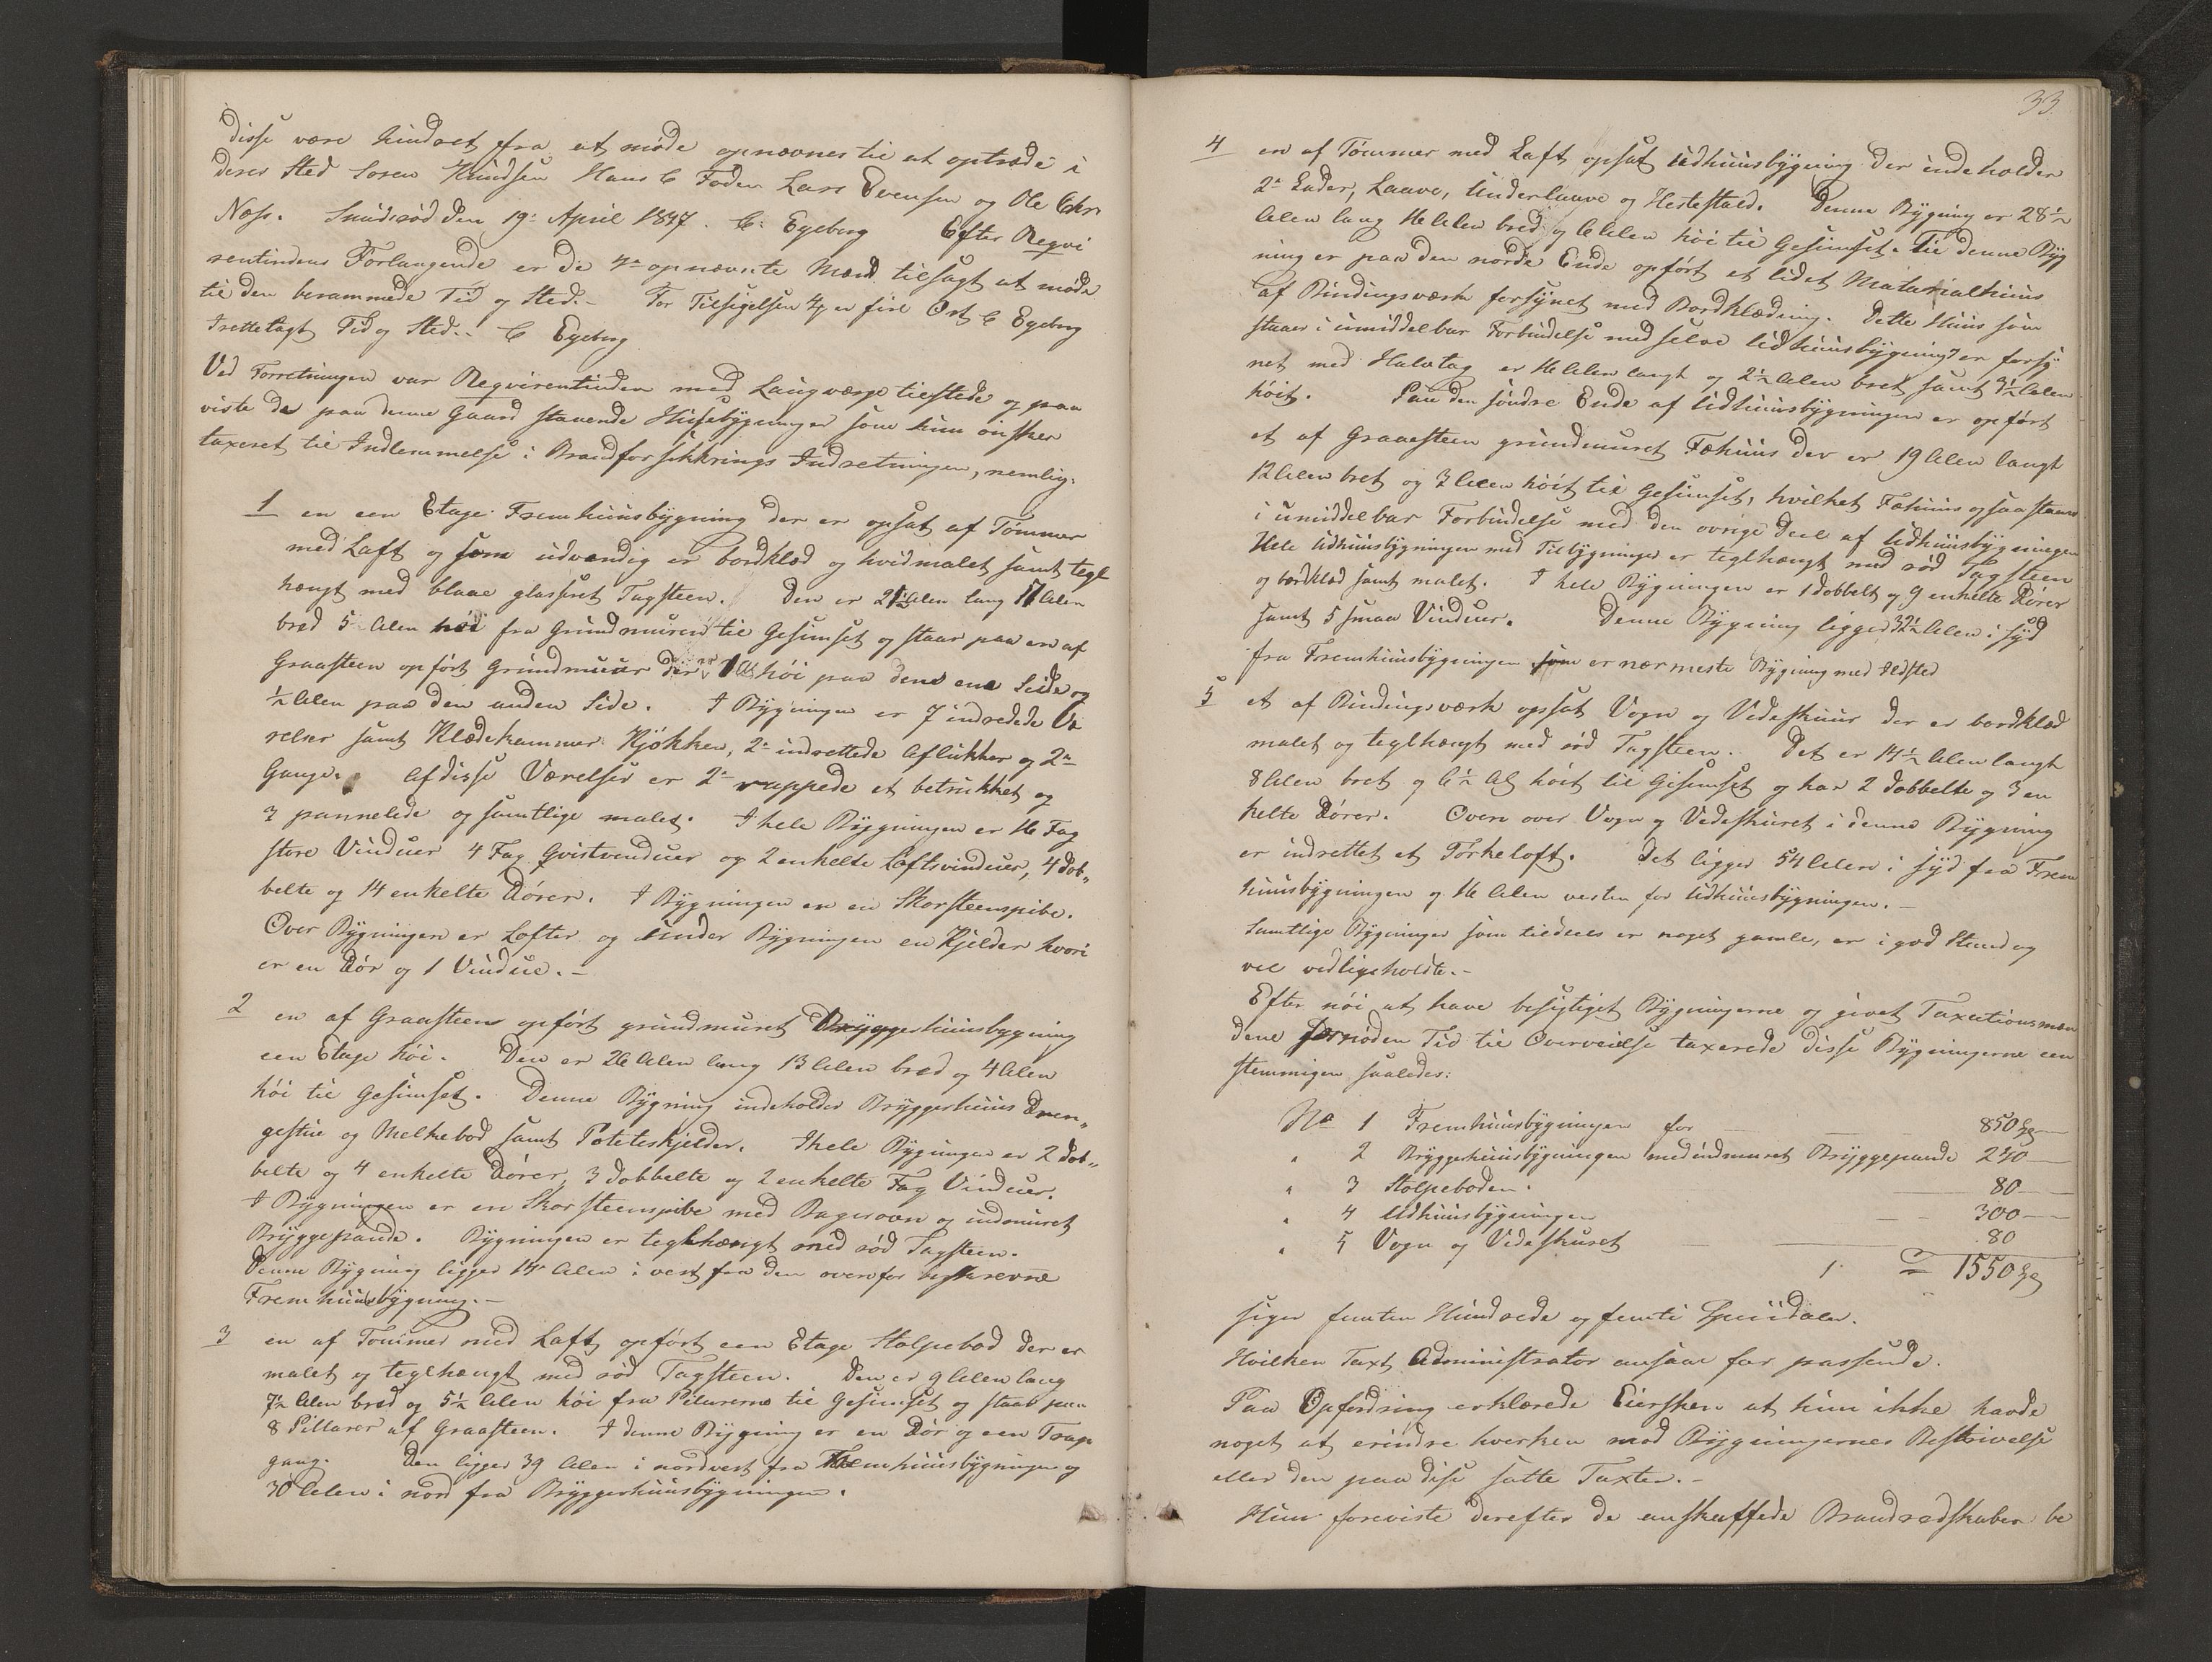 disse være hindret fra at møde opnævnes til at optræde i
deres Sted Soren Knudsen Hans C Foden Lars Evensen og Ole Chr:
Næss. Smidsrød den 19de April 1847. C: Egeberg Efter Reqvi
rentindens Forlangende er de 4re opnævnte Mænd tilsagt at møde
til den berammede Tid og Sted.- For Tilsigelsen 4/ er fire Ort C Egeberg
Irettelagt Tid og Sted.. C Egeberg
Ved Forretningen var Reqvirentinden med Laugværge tilstede og paa
viste de paa denne Gaard staaende Huusebygninger som hun ønsker
taxeret til Indlemmelse i Brandforsikkrings Indretningen, nemlig:
1 en een Etage Fremhuusbygning der er opsat af Tømmer
med Laft og som udvendig er bordklæd og hvidmalet samt tegl
hængt med blaae glasseret Tagsteen. Den er 21½ Alen lang 17 Alen
bred 5 Alen høi fra Grundmuren til Gesimset og staar paa en af
Graasteen opført Grundmuur der er 1 Al høi paa den ene Side og
½ Alen paa den anden Side. I Bygningen er 7 indredede Væ
relser samt Klædekammer Kjøkken, 2de indrettede Aflukker og 2de
Gange. Af disse Værelser er 2de rappede et betrukket og
3 pannelede og samtlige malet. I hele Bygningen er 16 Fag
store Vinduer 4 Fag Qvistvenduer og 2 enkelte Loftsvinduer, 4 dob„
belte og 14 enkelte Dører. I Bygningen er en Skorsteenspibe.
Over Bygningen er Lofter og under Bygningen en Kjelder hvori
er en Dør og 1 Vindue.-
2 en af Graasteen opført grundmuret Bryggerhuusbygning
een Etage høi. Den er 26 Alen lang 13 Alen bred og 4 Alen
høi til Gesimset. Denne Bygning indeholder Bryggerhuus Dren„
gestue og Melkebod samt Poteteskjelder. I hele Bygningen er 2 dob„
belte og 4 enkelte Dører, 3 dobbelte og 2 enkelte Fag Vinduer.
I Bygningen er en Skorsteenspibe med Bagerovn og indmuret
Bryggepande. Bygningen er teglhængt med rød Tagsteen.
Denne Bygning ligger 14 Alen i vest fra den ovenfor beskrevne
Fremhuusbygning.-
3 en af Tømmer med Laft opført een Etage Stolpebod der er
malet og teglhængt med rød Tagsteen. Den er 9 Alen lang
7½ Alen bred og 5½ Alen høi fra Pilarerne til Gesimset og staar paa
8 Pillarer af Graasteen. I denne Bygning er en Dør og een Trap
gang. Den ligger 39 Alen i nordvest fra Fremhuusbygningen og
30 Alen i nord fra Bryggerhuusbygningen.
33.
4 en af Tømmer med Laft opsat Udhuusbygning der indeholder
2de Lader, Laave, Underlaave og Hestestald. Denne Bygning er 28½
Alen lang 16 Alen bred og 6 Alen høi til Gesimset. Til denne Byg
ning er paa den nordre Ende opført et lidet Materialhuus
af Bindingsværk forsynet med Bordklædning. Dette Huus som
staaer i umiddelbar Forbindelse med selve Udhuusbygningen er forsy
net med Halvtag er 16 Alen langt og 2½ Alen bret samt 3½ Alen
høit. Paa den søndre Ende af Udhuusbygningen er opført
et af Graaesteen grundmuret Fæhuus der er 19 Alen langt
12 Alen bret og 3 Alen høit til Gesimset, hvilket Fæhuus ogsaa staaer
i umiddelbar Forbindelse med den øvrige Deel af Udhuusbygningen
Hele Udhuusbygningen med Tilbygninger er teglhængt med rød Tagsteen
og bordklæd samt malet. I hele Bygningen er 1 dobbelt og 9 enkelte Dører
samt 5 smaa Vinduer. Denne Bygning ligger 32½ Alen i syd
fra Fremhuusbygningen som er nærmeste Bygning med Ildsted
5 et af Bindingsværk opsat Vogn og Vedeskuur der er bordklæd
malet og teglhængt med rød Tagsteen. Det er 14½ Alen langt
8 Alen bret og 6½ Al høit til Gesimset og har 2 dobbelte og 3 en
kelte Dører. Oven over Vogn og Vedeskuret i denne Bygning
er indrettet et Tørkeloft. Det ligger 54 Alen i syd fra Frem
huusbygningen og 16 Alen vesten for Udhuusbygningen.-
Samtlige Bygninger som tildeels er noget gamle, er i god Stand og
vel vedligeholdte.-
Efter nøi at have besigtiget Bygningerne og givet Taxationsmæn
dene fornøden Tid til Overveielse taxerede disse Bygningerne een
stemmigen saaledes:
No 1 Fremhuusbygningen for 850 Spd
" 2 Bryggerhuusbygningen med indmuret Bryggepande 240
" 3 Stolpeboden. 80
" 4 Udhuusbygningen 300
" 5 Vogn og Vedeskuret 80
1550 Spd
siger femten Hundrede og femti Speciedaler.
Hvilken Taxt Administrator ansaae for passende.
Paa Opfordring erklærede Eiersken at hun ikke havde
noget at erindre hverken mod Bygningernes Beskrivelse
eller den paa disse satte Taxter.-
Hun foreviste derefter de anskaffede Brandredskaber be